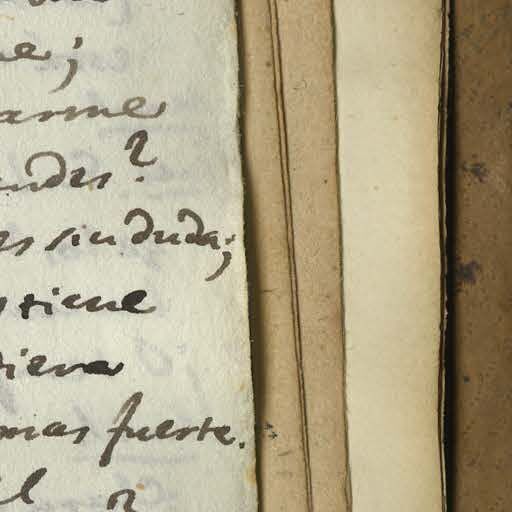 ne;
arme
endes?
es sin duda;
tiene
diera
mas fuerte.
el